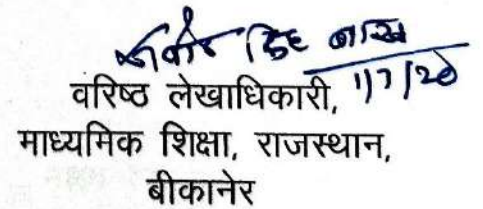 सिंह
1/7/20
वरिष्ठ लेखाधिकारी,
माध्यमिक शिक्षा, राजस्थान,
बीकानेर